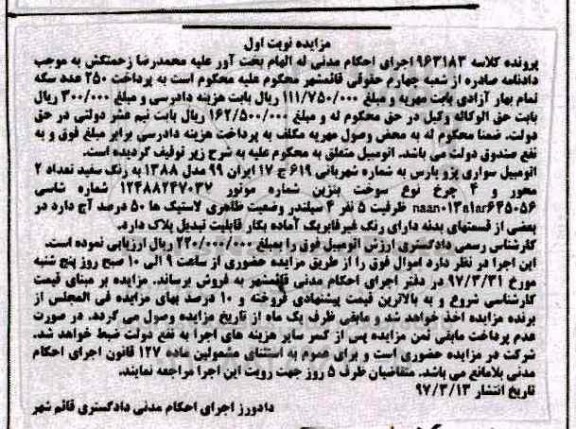 مزایده نوبت اول
پرونده کلاسه ۹۶۳۱۸۳ اجرای احکام مدنی له الهام بخت آور علیه محمدرضا زحمتکش به موجب
دادنامه صادره از شعبه چهارم حقوقی قائمشهر محکوم علیه محکوم است به پرداخت ۲۵۰ عدد سکه
تمام بهار آزادی بابت مهریه و مبلغ ۱۱۱/۷۵۰/۰۰۰ ریال بابت هزینه دادرسی و مبلغ ۳۰۰/۰۰۰ ریال
بابت حق الوکاله وکیل در حق محکوم له و مبلغ ۱۶۲/۵۰۰/۰۰۰ ریال بابت نیم عشر دولتی در حق
دولت. ضمنا محکوم له به محض وصول مهریه مکلف به پرداخت هزینه دادرسی برابر مبلغ فوق و به
نفع صندوق دولت می باشد. اتومبیل متعلق به محکوم علیه به شرح زیر توقیف گردیده است.
اتومبیل سواری پژو پارس به شماره شهربانی ۶۱۹ ج ۱۷ ایران ۹۹ مدل ۱۳۸۸ به رنگ سفید تعداد ۲
محور و ۴ چرخ نوع سوخت بنزین شماره موتور ۱۲۴۸۸۲۴۷۰۳۷ شماره شاسی
naan۰۱۳a۱ar۶۴۵۰۵۶ ظرفیت ۵ نفر ۴ سیلندر وضعیت ظاهری لاستیک ها ۵۰ درصد آج دارد در
بعضی از قسمتهای بدنه دارای رنگ غیرفابریک آماده بکار قابلیت تبدیل پلاک دارد.
کارشناس رسمی دادگستری ارزش اتومبیل فوق را بمبلغ ۲۲۰/۰۰۰/۰۰۰ ریال ارزیابی نموده است.
این اجرا در نظر دارد اموال فوق را از طریق مزایده حضوری از ساعت ۹ الی ۱۰ صبح روز پنج شنبه
مورخ ۹۷/۳/۳۱ در دفتر اجرای احکام مدنی قائمشهر به فروش برساند. مزایده بر مبنای قیمت
کارشناسی شروع و به بالاترین قیمت پیشنهادی فروخته و ۱۰ درصد بهای مزایده فی المجلس از
برنده مزایده اخذ خواهد شد و مابقی ظرف یک ماه از تاریخ مزایده وصول می گردد. در صورت
عدم پرداخت مابقی ثمن مزایده پس از کسر سایر هزینه های اجرا به نفع دولت ضبط خواهد شد.
شرکت در مزایده حضوری است و برای عموم به استثنای مشمولین ماده ۱۲۷ قانون اجرای احکام
مدنی بلامانع می باشد. متقاضیان ظرف ۵ روز جهت رویت این اجرا مراجعه نمایند.
تاریخ انتشار ۹۷/۳/۱۳
دادورز اجرای احکام مدنی دادگستری قائم شهر